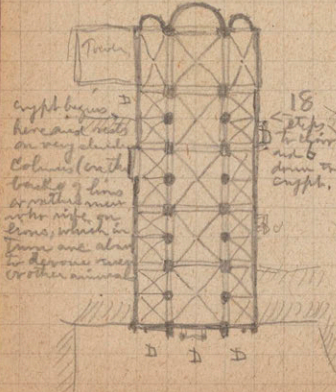 Tower
D
crypt begins
here and rests
on very slender
columns (on the
backs of lions
or rather men
who ride on
lions, which in
turn are about
to devour
or other animal
18
steps
to choir
and 6
down to
crypt
D
D D D